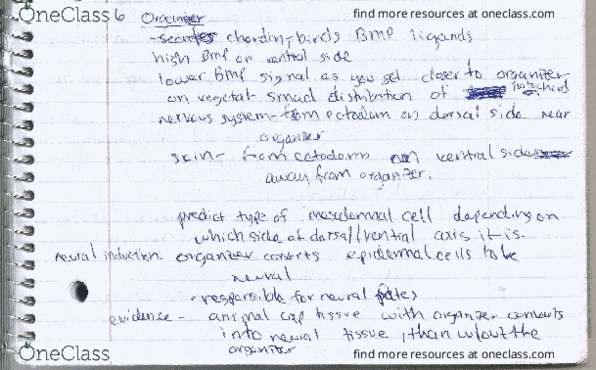 OneClass
find more resources at oneclass.com
6 Organizer
- secretes chordin, binds BMP ligands
high Bmp on ventral side
lower BMP signal as you get closer to organizer
on vegetal smad distribution of notochord
nervous system - from ectoderm on dorsal side near
organizer
skin - from ectoderm on ventral side
away from organizer.
predict type of mesodermal cell depending on
which side of dorsal/ventral axis it is.
neural induction: organizer converts epidermal cells to be
neural
- responsible for neural fates
evidence - animal cap tissue with organizer converts
into neural tissue, than w/out the
organizer
OneClass
find more resources at oneclass.com